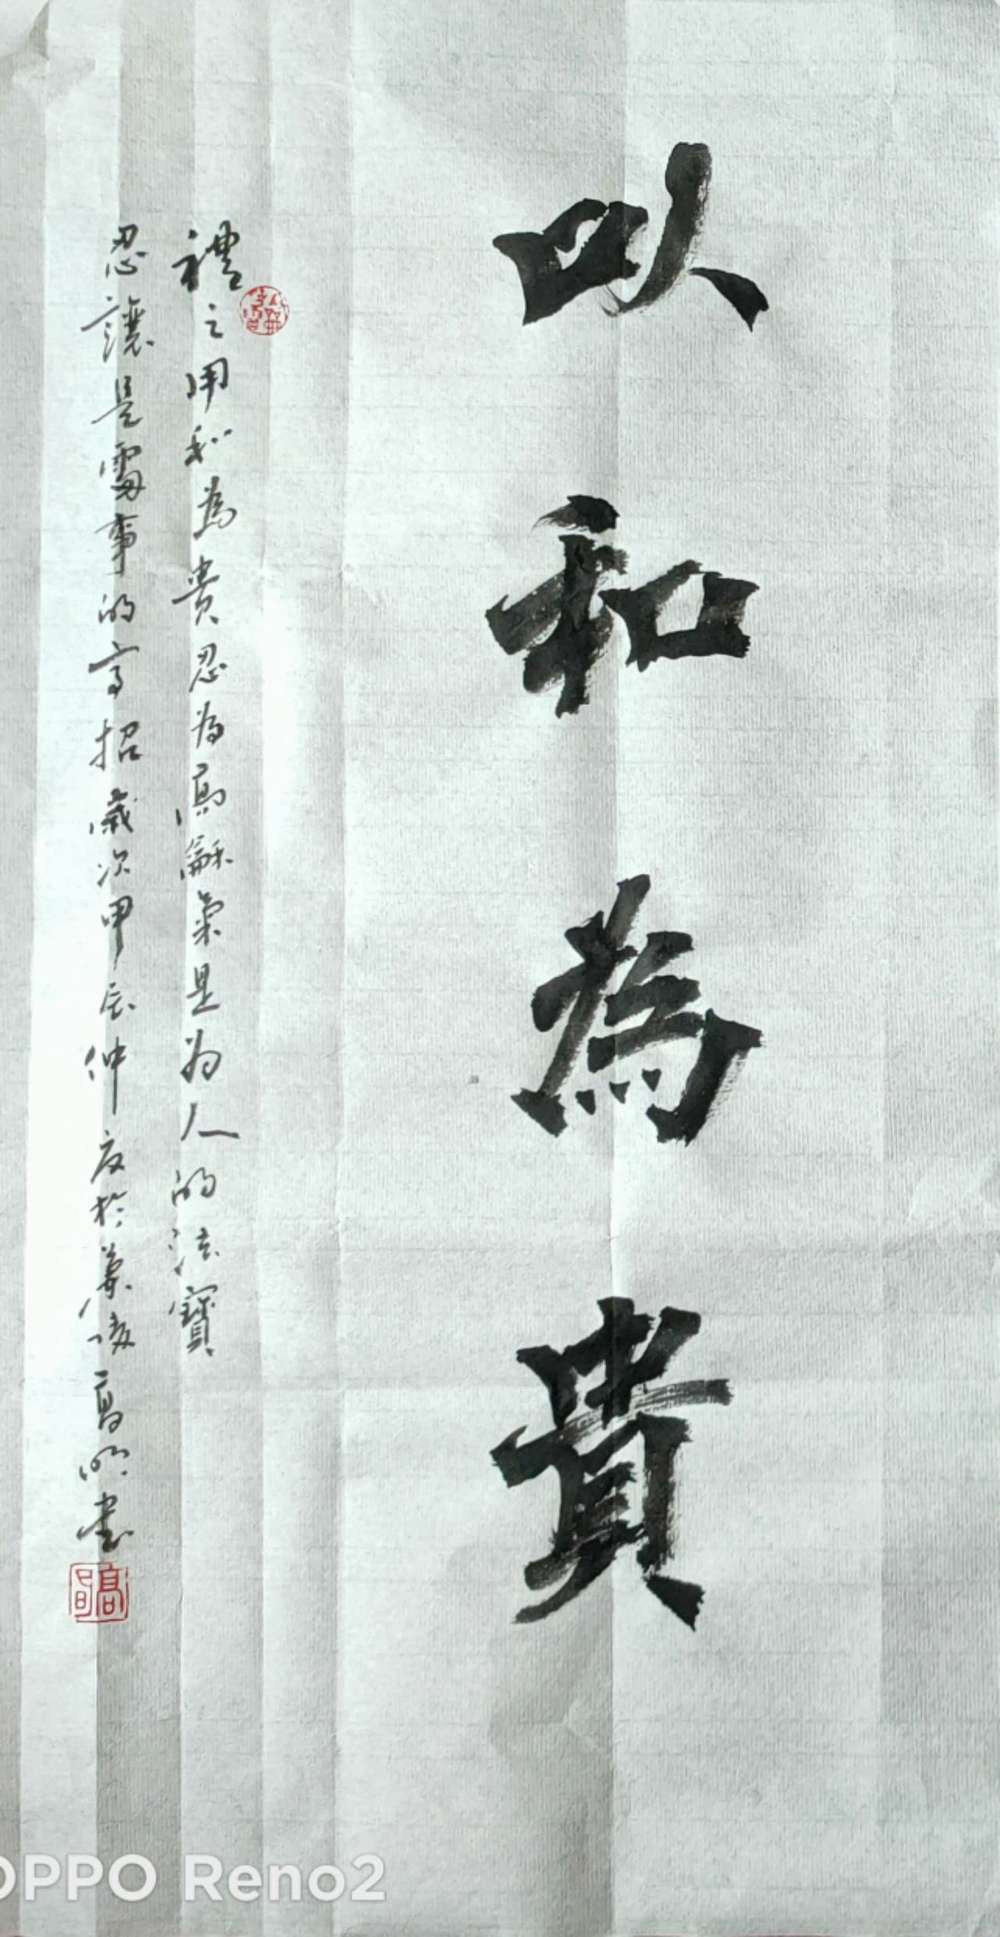 以和為貴
禮之用和為貴忍为高龢氣是为人的法寶
忍讓是處事的高招歲次甲辰仲夏於書
高
OPPO Reno2